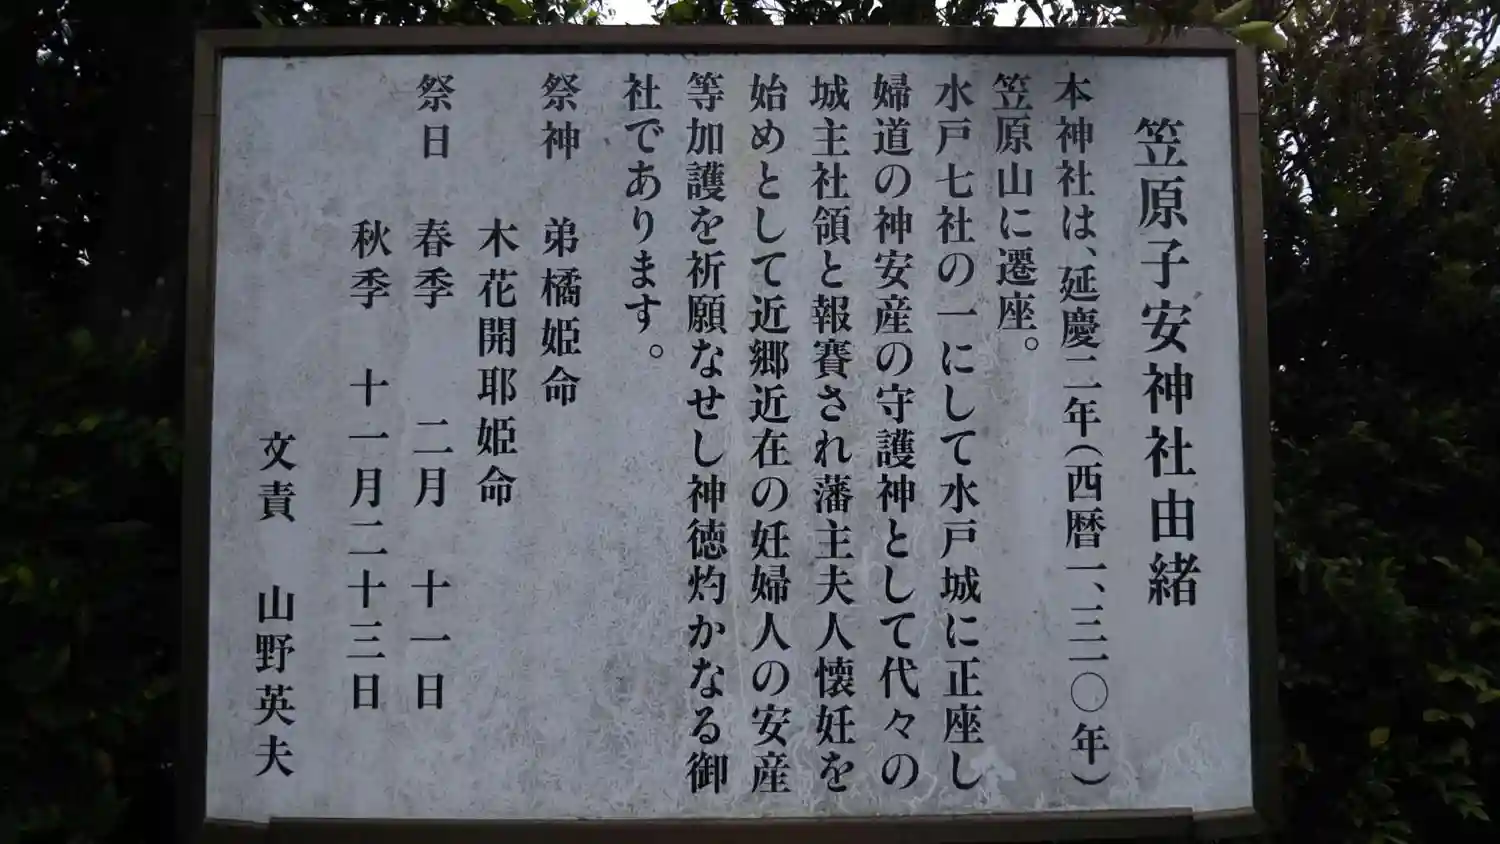 笠原子安神社由緒
本神社は、延慶二年(西暦一、三一〇年)
笠原山に遷座。
水戸七社の一にして水戸城に正座し
婦道の神安産の守護神として代々の
城主社領と報賽され藩主夫人懐妊を
始めとして近郷近在の妊婦人の安産
等加護を祈願なせし神徳灼かなる御
社であります。
祭神 弟橘姫命
木花開耶姫命
祭日 春季 二月 十一日
秋季 十一月二十三日
文責 山野英夫